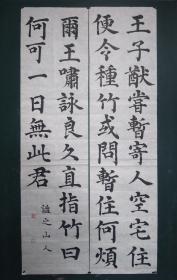 王子猷嘗暫寄人空宅住
便令種竹或問暫住何煩
爾王嘯詠良久直指竹曰
何可一日無此君
之山人